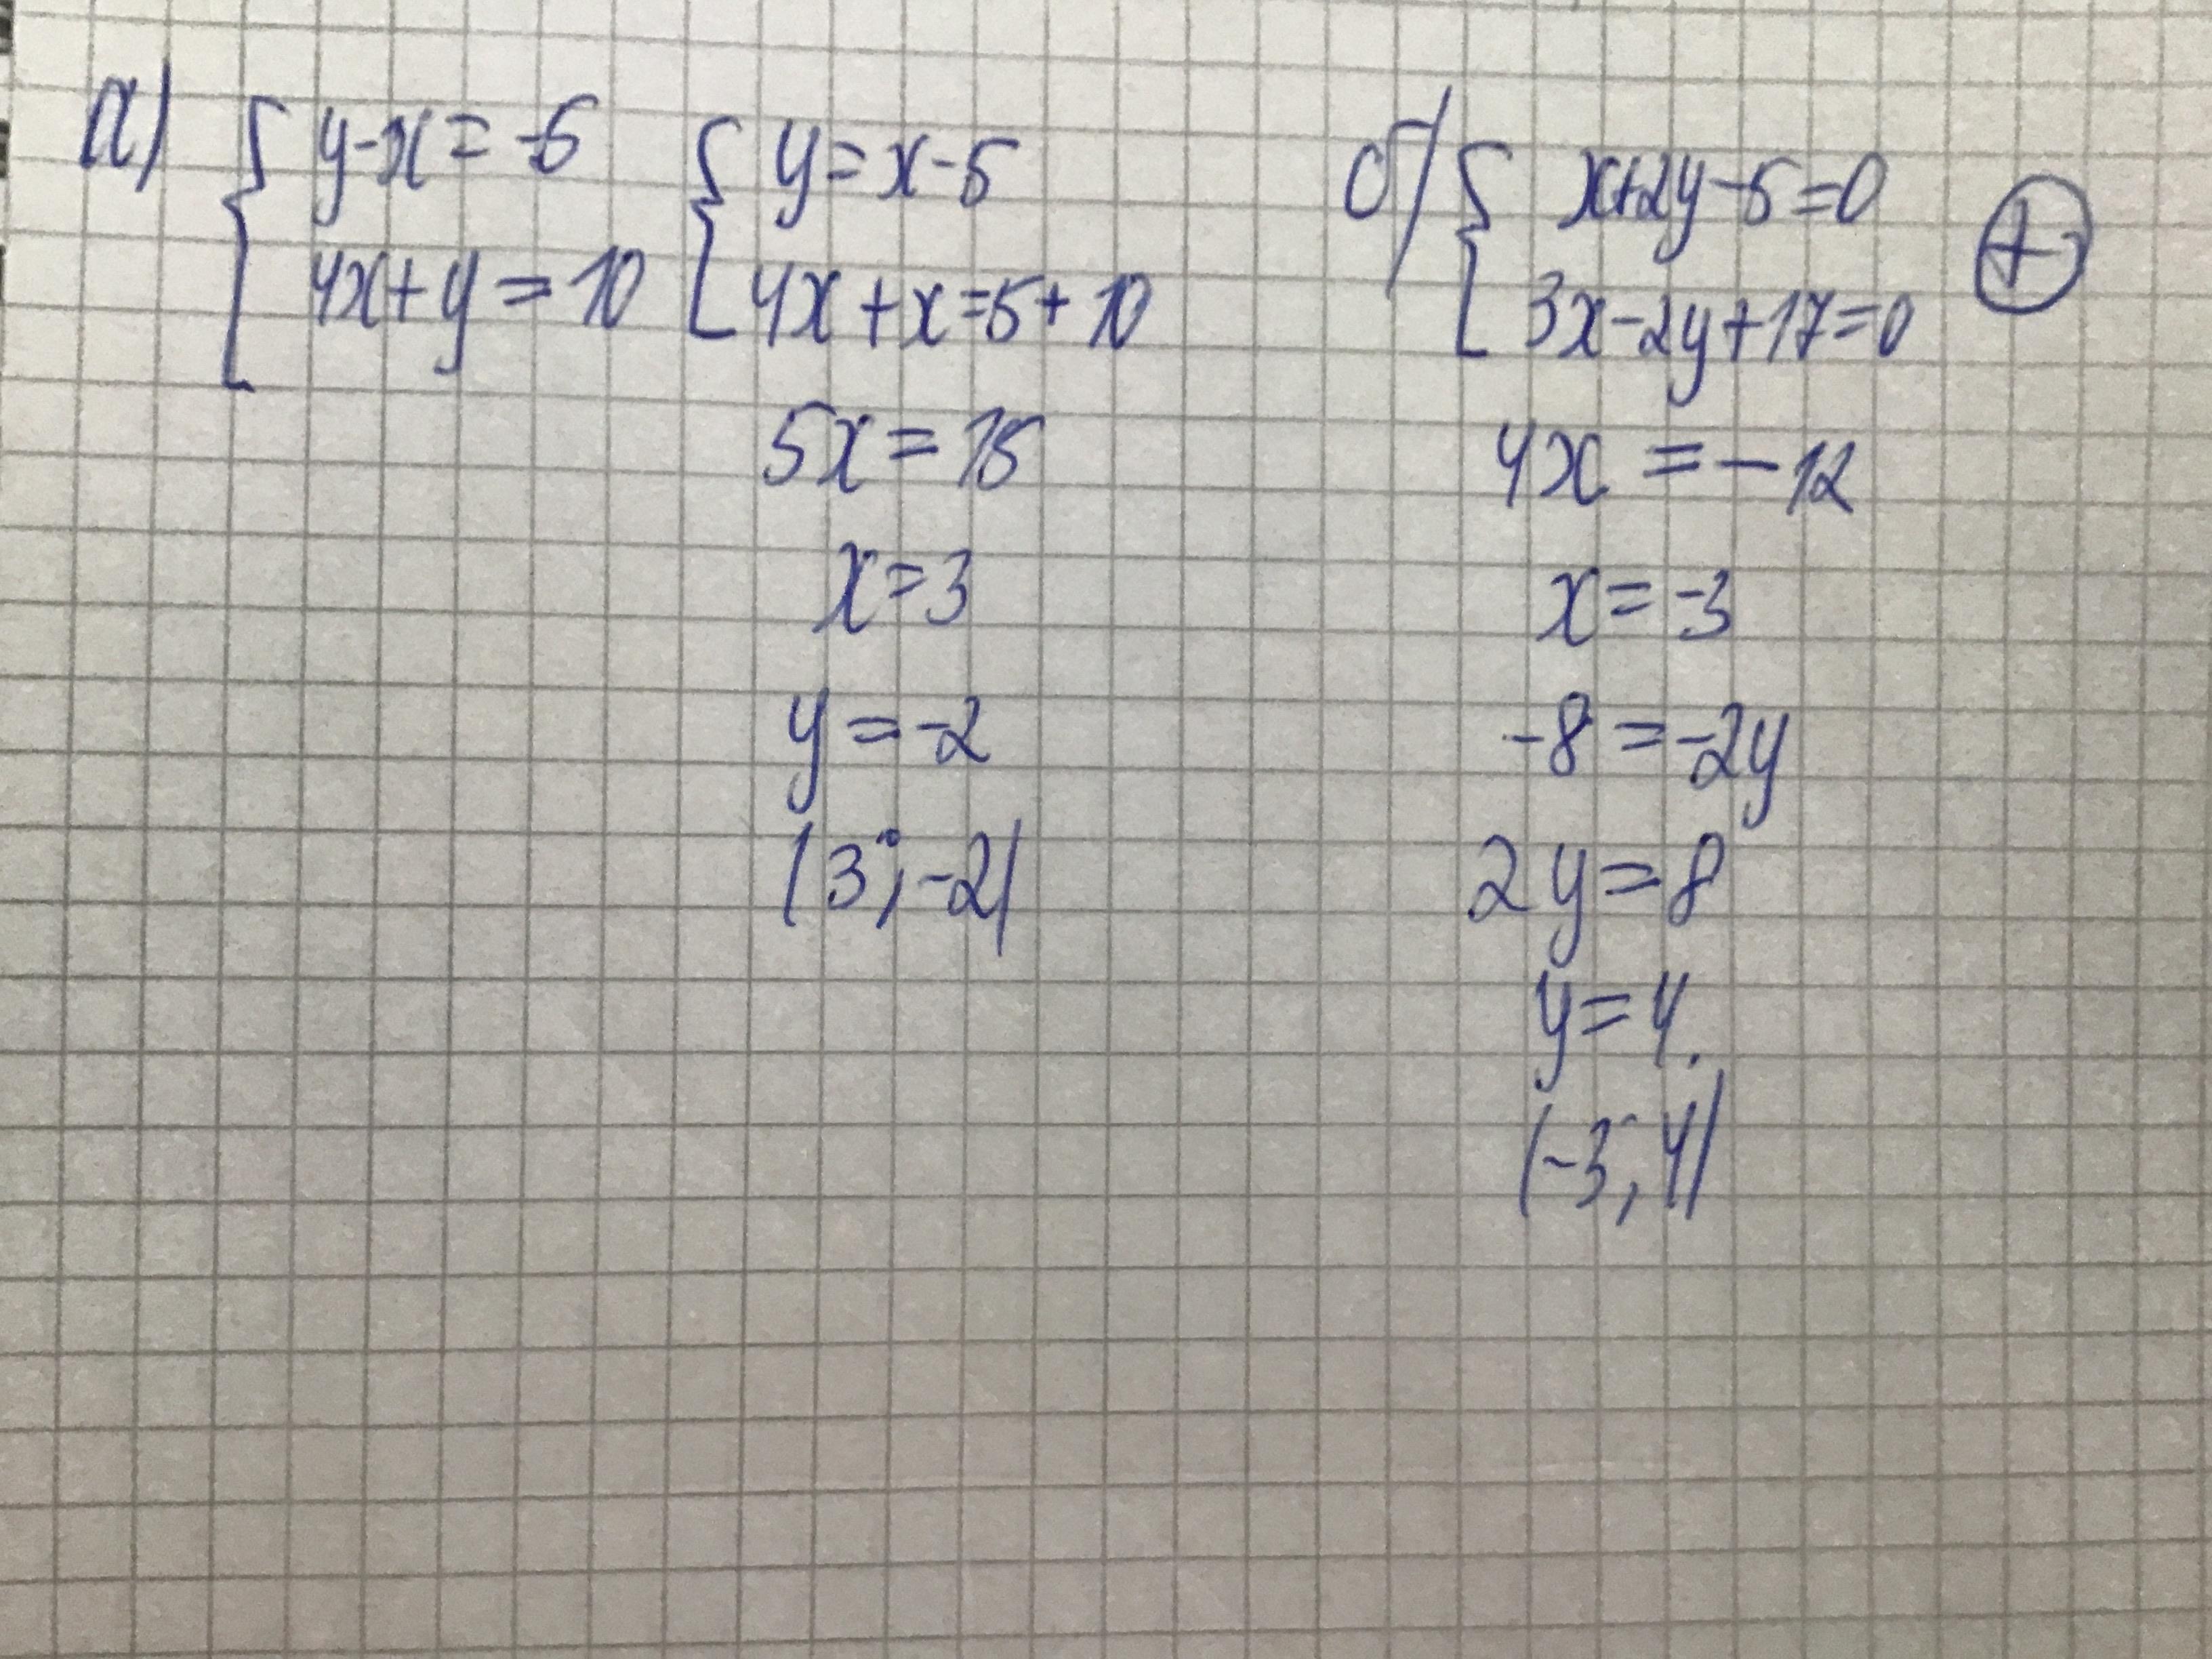 а)
{ y-x=-5
4x+y=10
{ y=x-5
4x+x=5+10
5x=15
x=3
y=-2
(3;-2)
б)
{ x+2y-5=0
3x-2y+17=0
+
4x=-12
x=-3
-8=-2y
2y=8
y=4.
(-3;4)